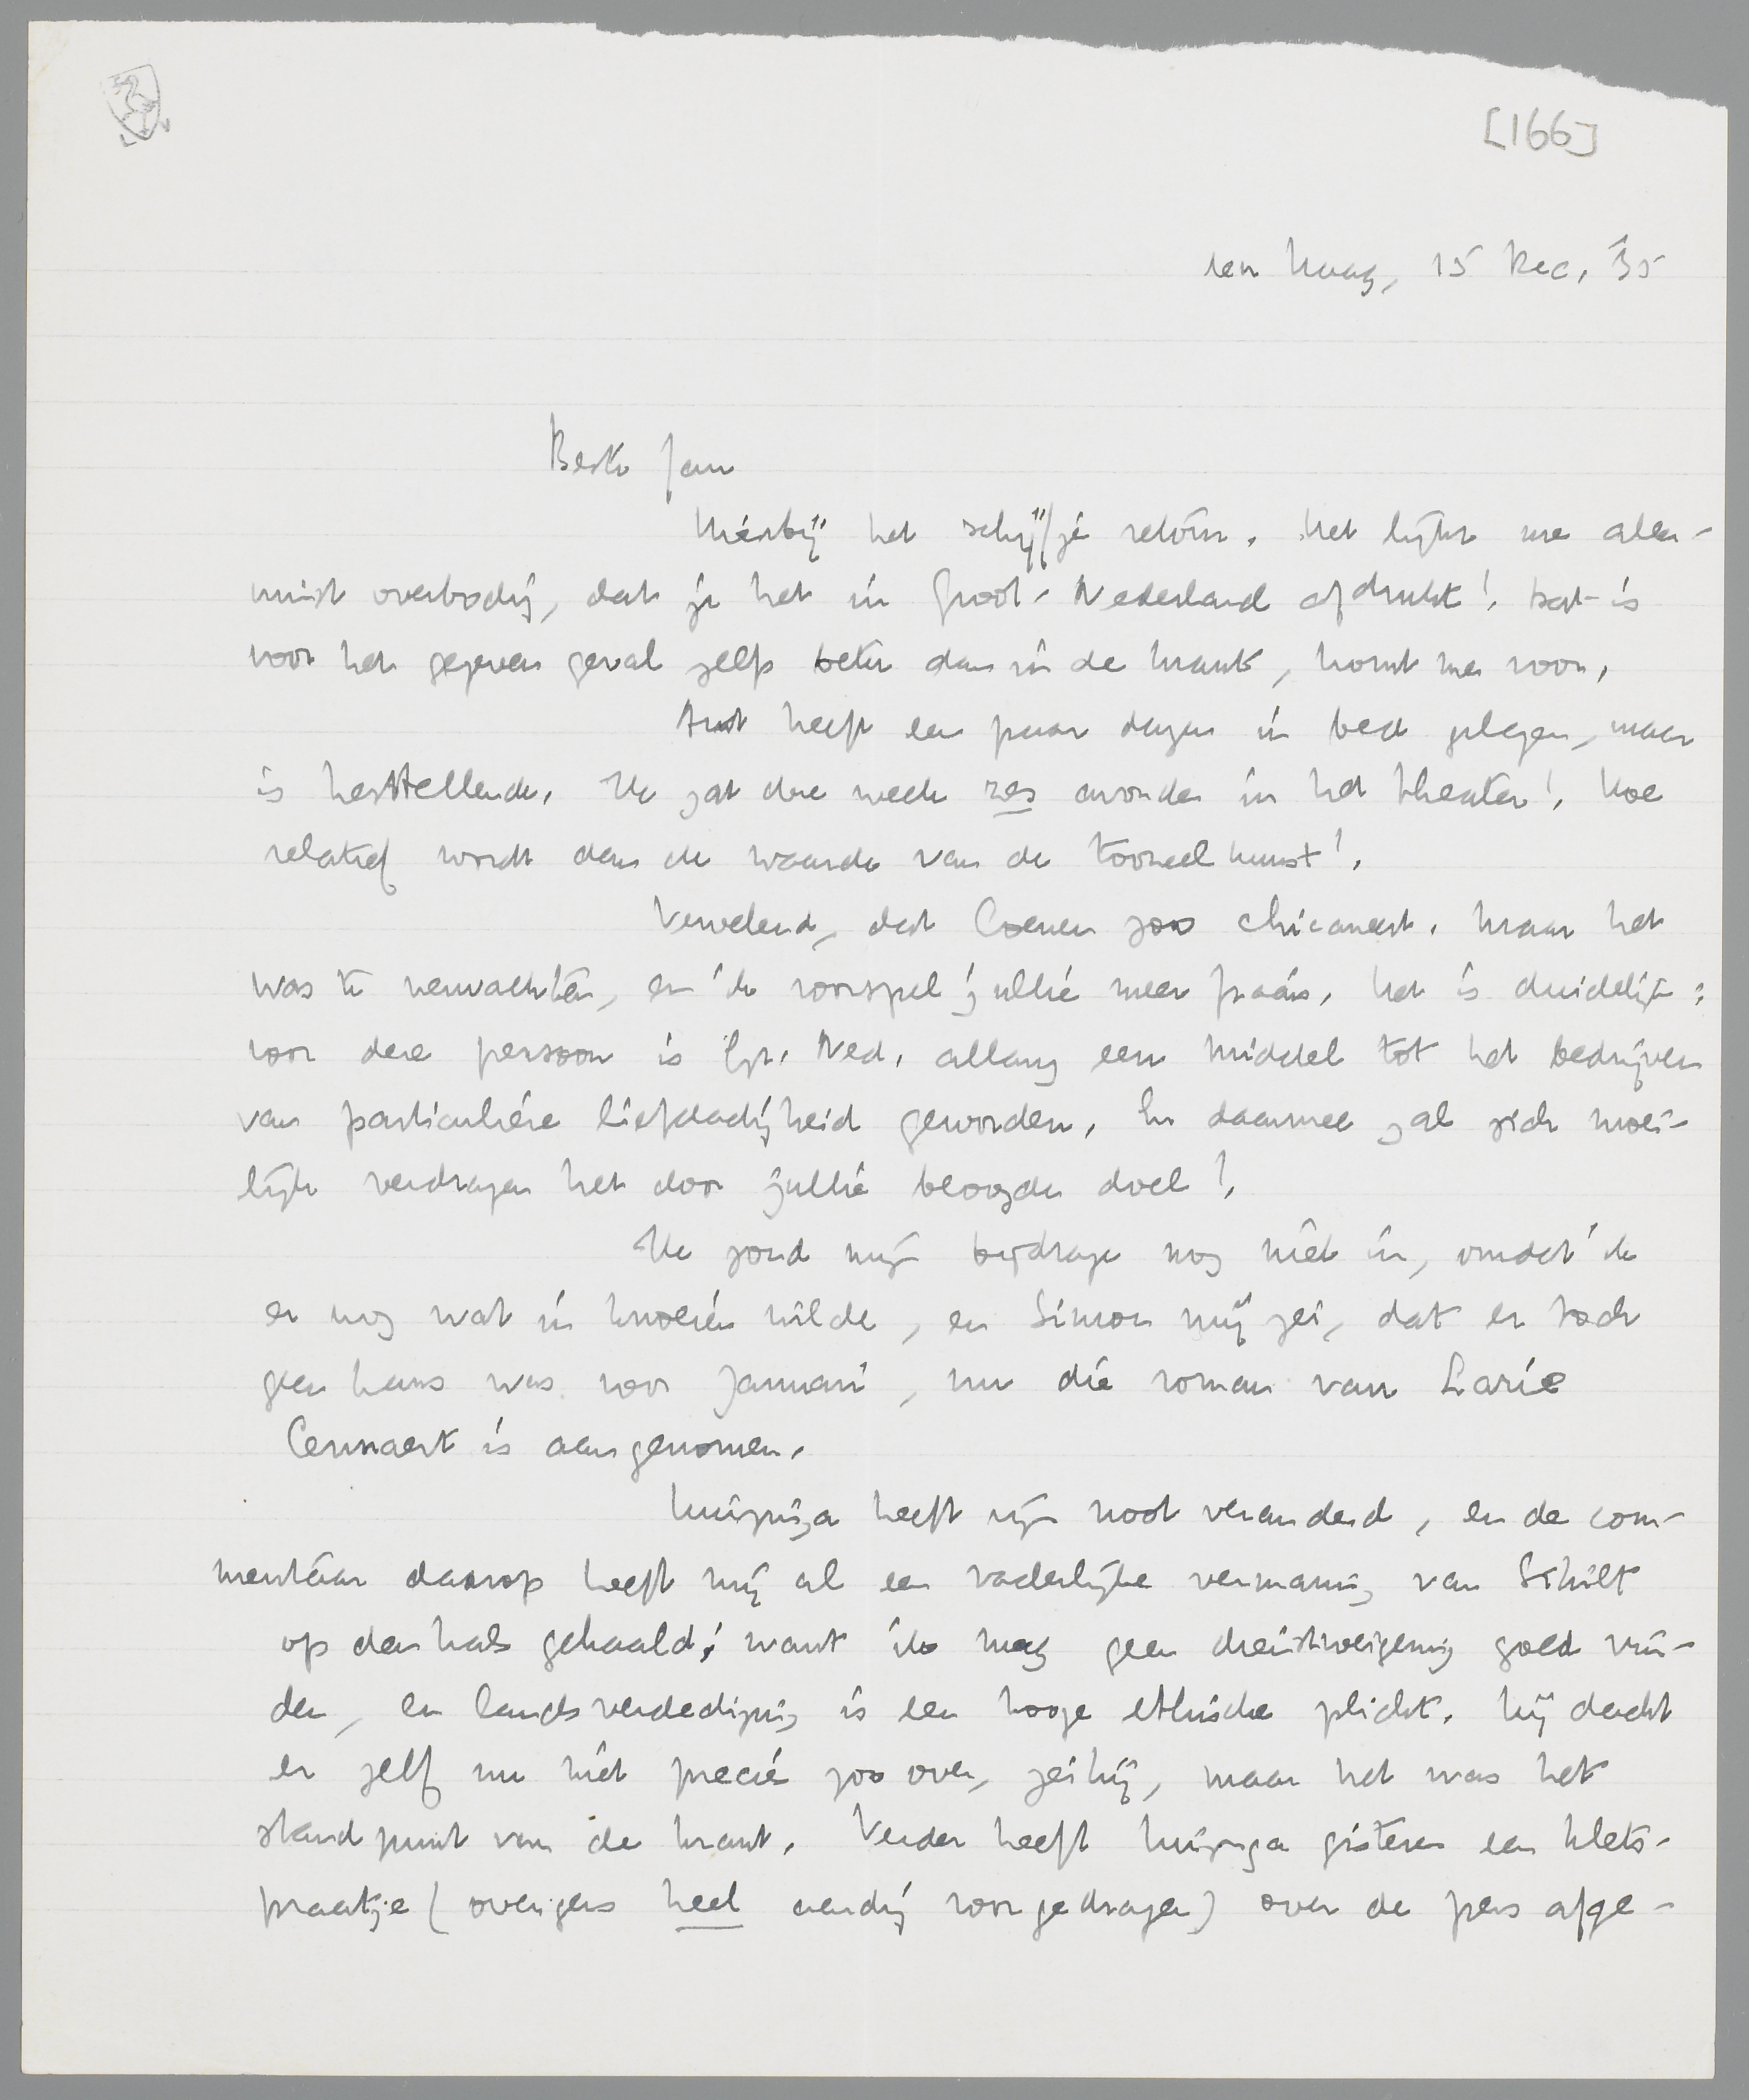 [166]
den Haag, 15 Dec. '35
Beste Jan
Hierbij het schrijfje retour. Het lijkt me aller-
minst overbodig, dat je het in Groot-Nederland afdrukt! Dat is
voor het gegeven geval zelfs beter dan in de krant, komt me voor.
Ant heeft een paar dagen in bed gelegen, maar
is herstellende. Ik zat deze week zes avonden in het theater! Hoe
relatief wordt dan de waarde van de tooneelkunst!
Vervelend, dat Coenen zoo chicaneert. Maar het
was te verwachten, en ik voorspel jullie meer fraais. Het is duidelijk:
voor deze persoon is Gr. Ned. allang een middel tot het bedrijven
van particuliere liefdadigheid geworden. En daarmee zal zich moei-
lijk verdragen het door jullie beoogde doel!
Ik zond mijn bijdrage nog niet in, omdat ik
er nog wat in knoeien wilde, en Simon mij zei, dat er toch
geen kans was voor Januari, nu die roman van Larie
Cennaert is aangenomen.
Huizinga heeft zijn noot veranderd, en de com-
mentaar daarop heeft mij al een vaderlijke vermaning van Schilt
op den hals gehaald; want ik mag geen dienstweigering goed vin-
den, en landsverdediging is een hooge ethische plicht. Hij dacht
er zelf nu niet precies zoo over, zei hij, maar het was het
standpunt van de krant. Verder heeft Huizinga gisteren een klets-
praatje (overigens heel aardig voorgedragen) over de pers afge-